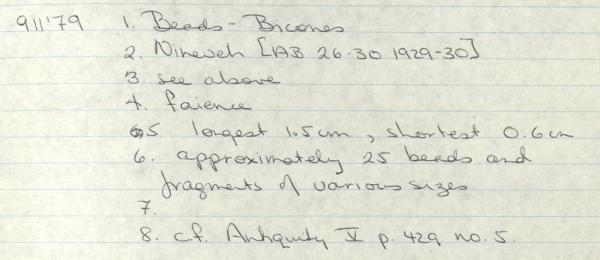 911'79 1. Beads - Bicones
2. Nineveh [AB 26-30 1929-30]
3 see above
4. faience
5 longest 1.5cm, shortest 0.6cm
6. approximately 25 beads and
fragments of various sizes
7.
8. c.f. Antiquity V p. 429 no. 5.